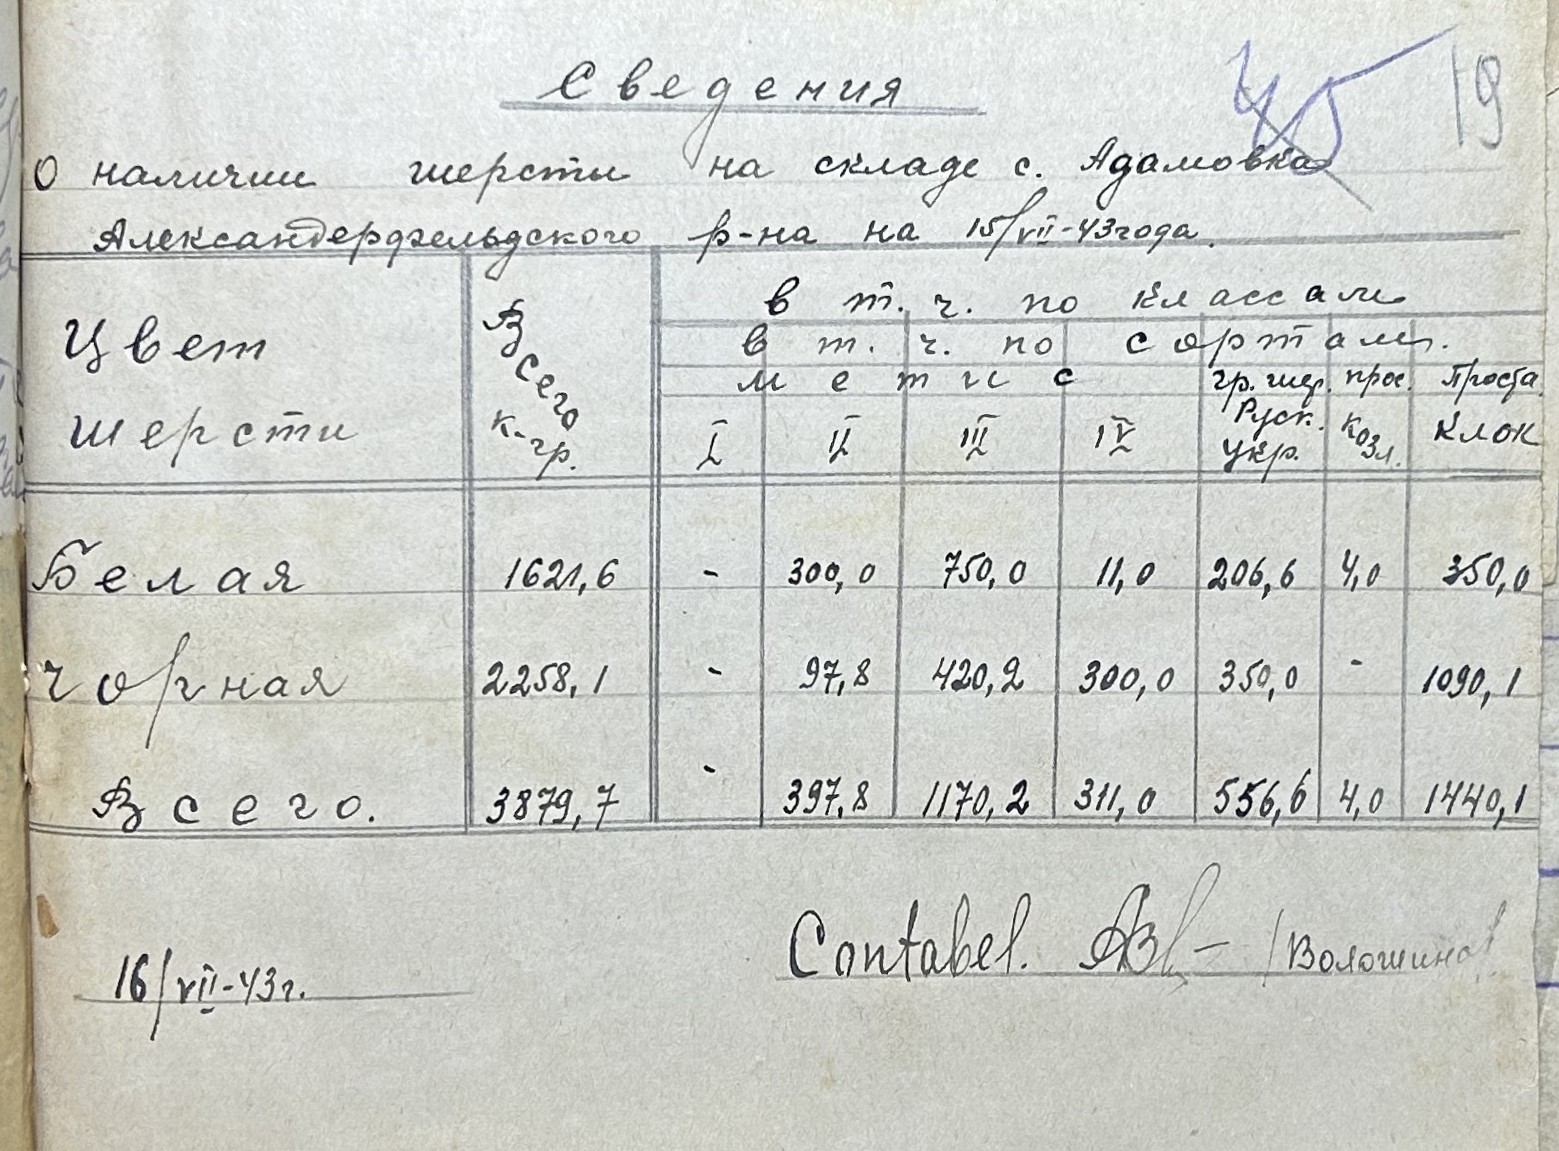 45 19
Сведения
О наличии шерсти на складе с. Адамовка
Александерфельдского р-на на 15/VII-43 года.
Цвет шерсти
Всего к-гр.
в т. ч. по классам
в т. ч. по сортам.
метис гр. шер. прос. Проста
I II III IV Руск. Укр. козл. клок
Белая 1621,6 - 300,0 750,0 11,0 206,6 4,0 350,0
Чорная 2258,1 - 97,8 420,2 300,0 350,0 - 1090,1
Всего. 3879,7 - 397,8 1170,2 311,0 556,6 4,0 1440,1
Contabel. /Волошинов/
16/VII-43г.